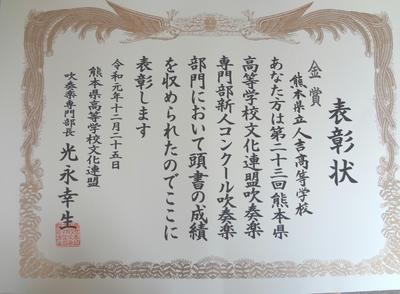 表彰状
金賞
熊本県立人吉高等学校
あなた方は第二十三回熊本県
高等学校文化連盟吹奏楽
専門部新人コンクール吹奏楽
部門において頭書の成績
を収められたのでここに
表彰します
令和元年十二月二十五日
熊本県高等学校文化連盟
吹奏楽専門部長 光永幸生